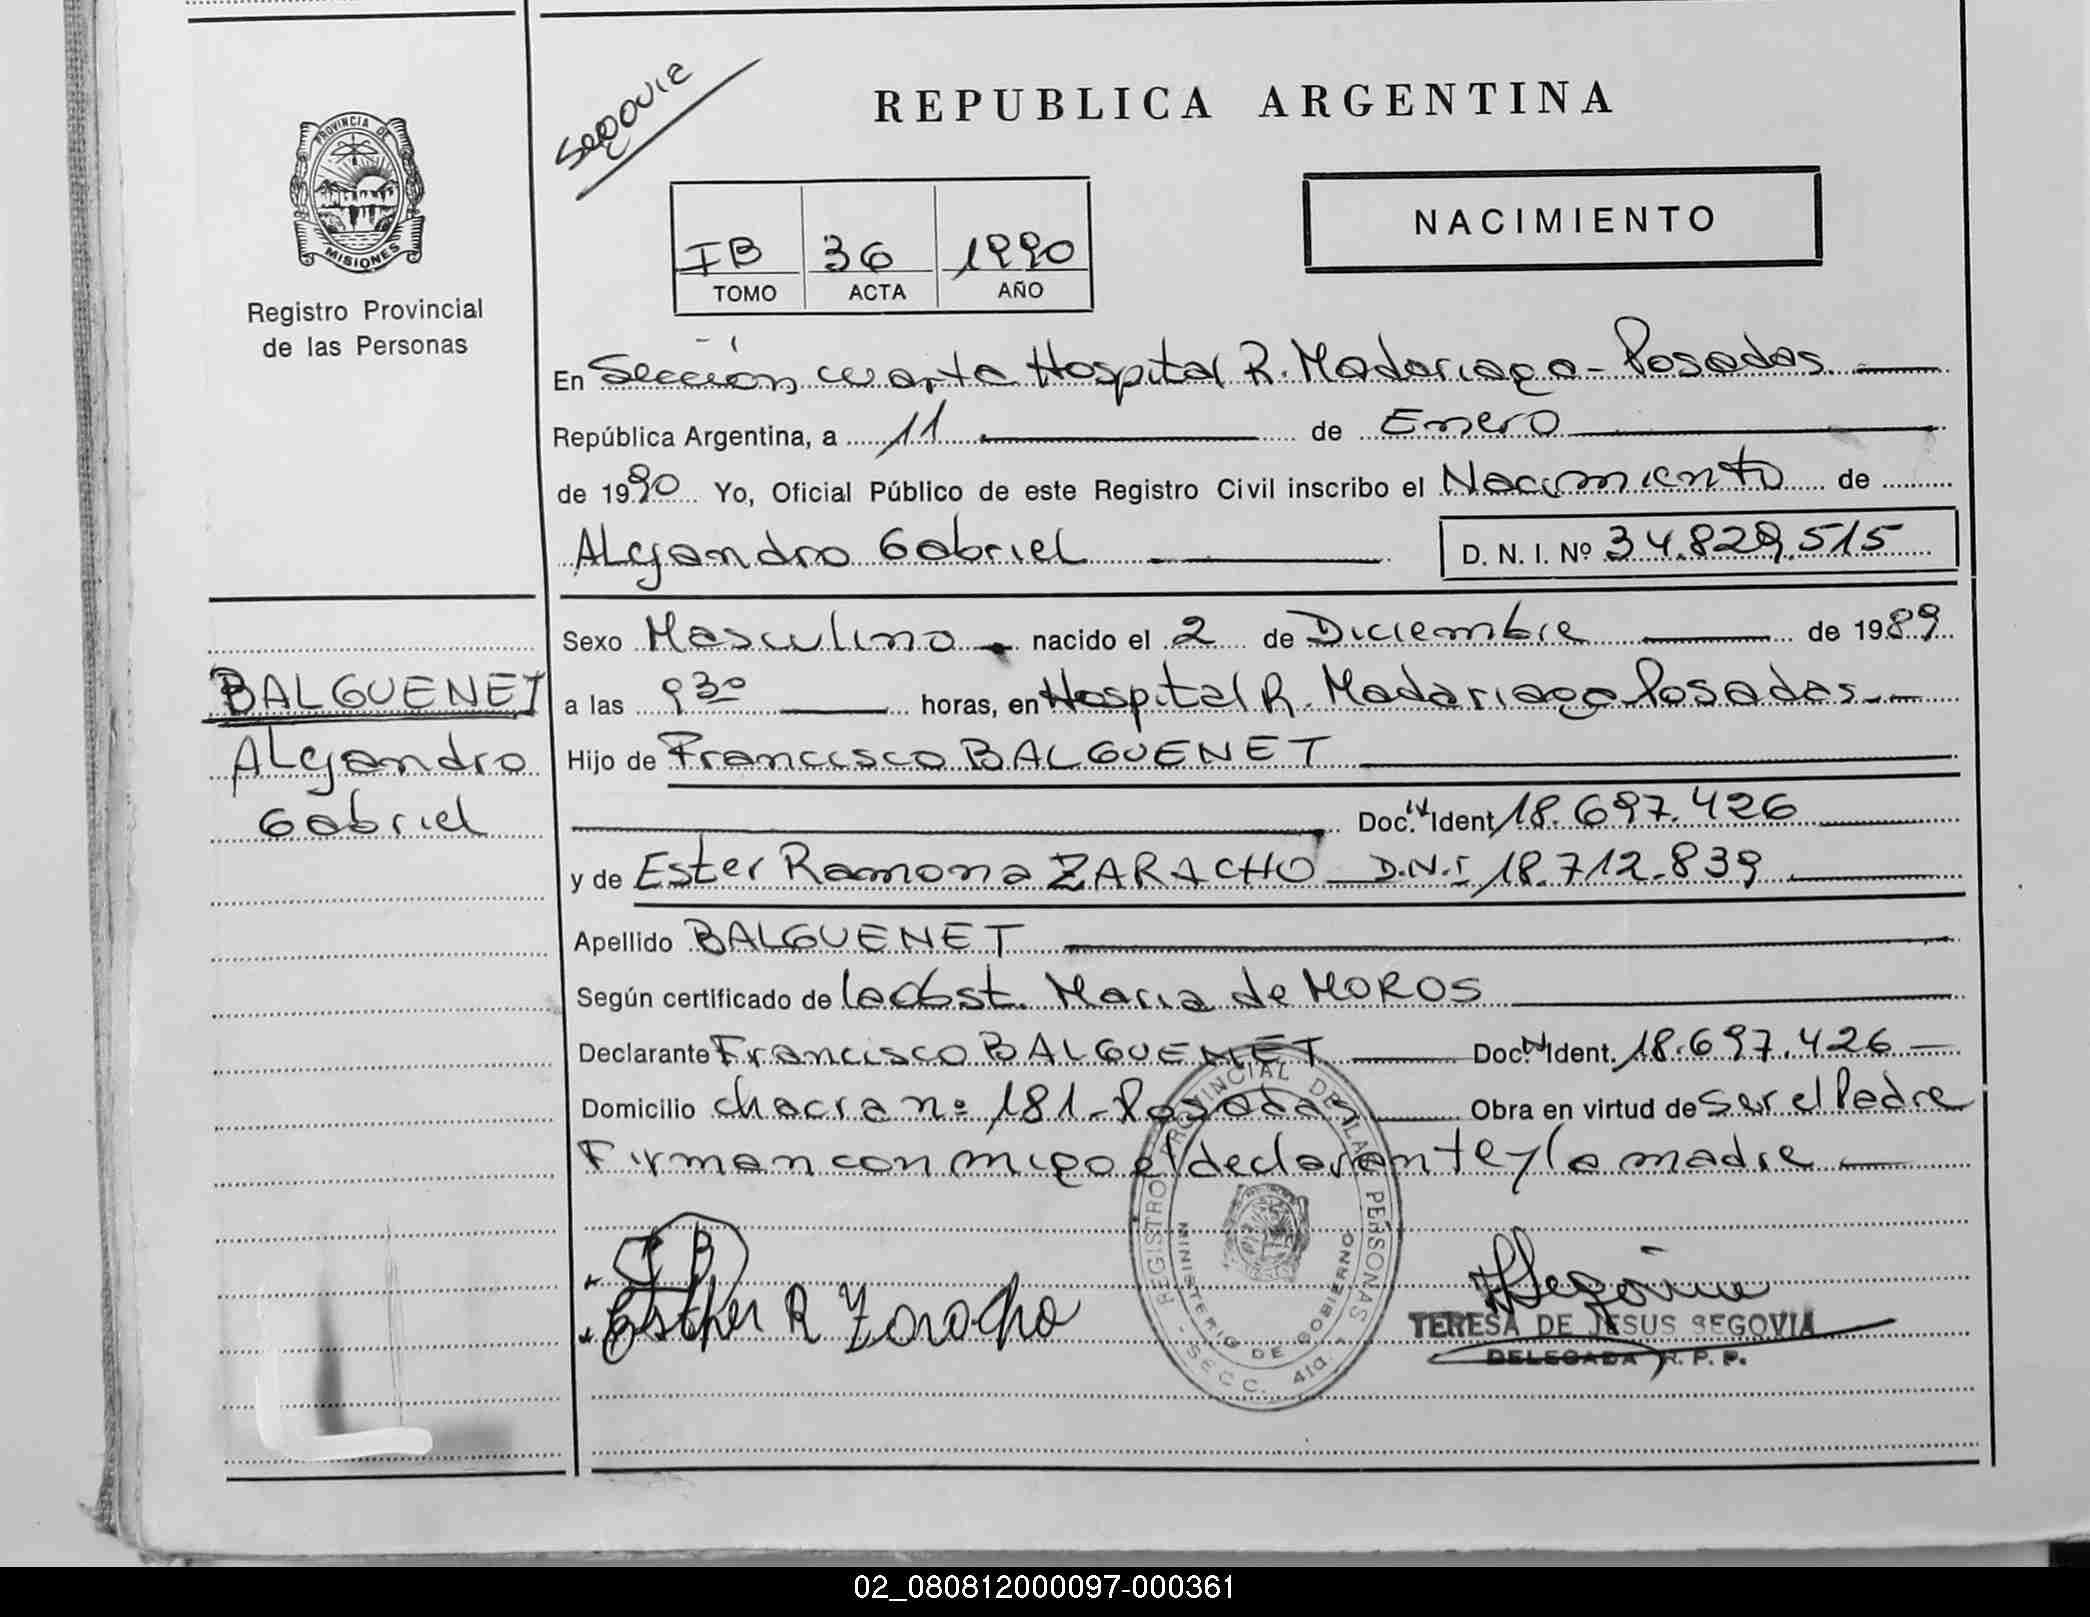 Segovia
REPUBLICA ARGENTINA
PROVINCIA DE
MISIONES
Registro Provincial
de las Personas
NACIMIENTO
IB 36 1990
TOMO ACTA AÑO
En Sección cuarta Hospital R. Madariaga - Posadas.
República Argentina, a 11 de Enero
de 1990 Yo, Oficial Público de este Registro Civil inscribo el Nacimiento de
Alejandro Gabriel D. N. I. Nº 34.829.515
Sexo Masculino nacido el 2 de Diciembre de 1989
BALGUENET
Alejandro
Gabriel
a las 930 horas, en Hospital R. Madariaga Posadas
Hijo de Francisco BALGUENET
Doc. Ident 18.697.426
y de Ester Ramona ZARACHO D.N.I 18.712.839
Apellido BALGUENET
Según certificado de la Obst. Maria de MOROS
Declarante Francisco BALGUENET Doc. Ident. 18.697.426
Domicilio chacra nº 181 - Posadas Obra en virtud de Ser el Padre
Firman conmigo el declarante y la madre
REGISTRO PROVINCIAL DE LAS PERSONAS
MINISTERIO DE GOBIERNO
SECC. 4ta.
F B
Esther R Zaracho
Segovia
TERESA DE JESUS SEGOVIA
DELEGADA R. P. P.
02_080812000097-000361